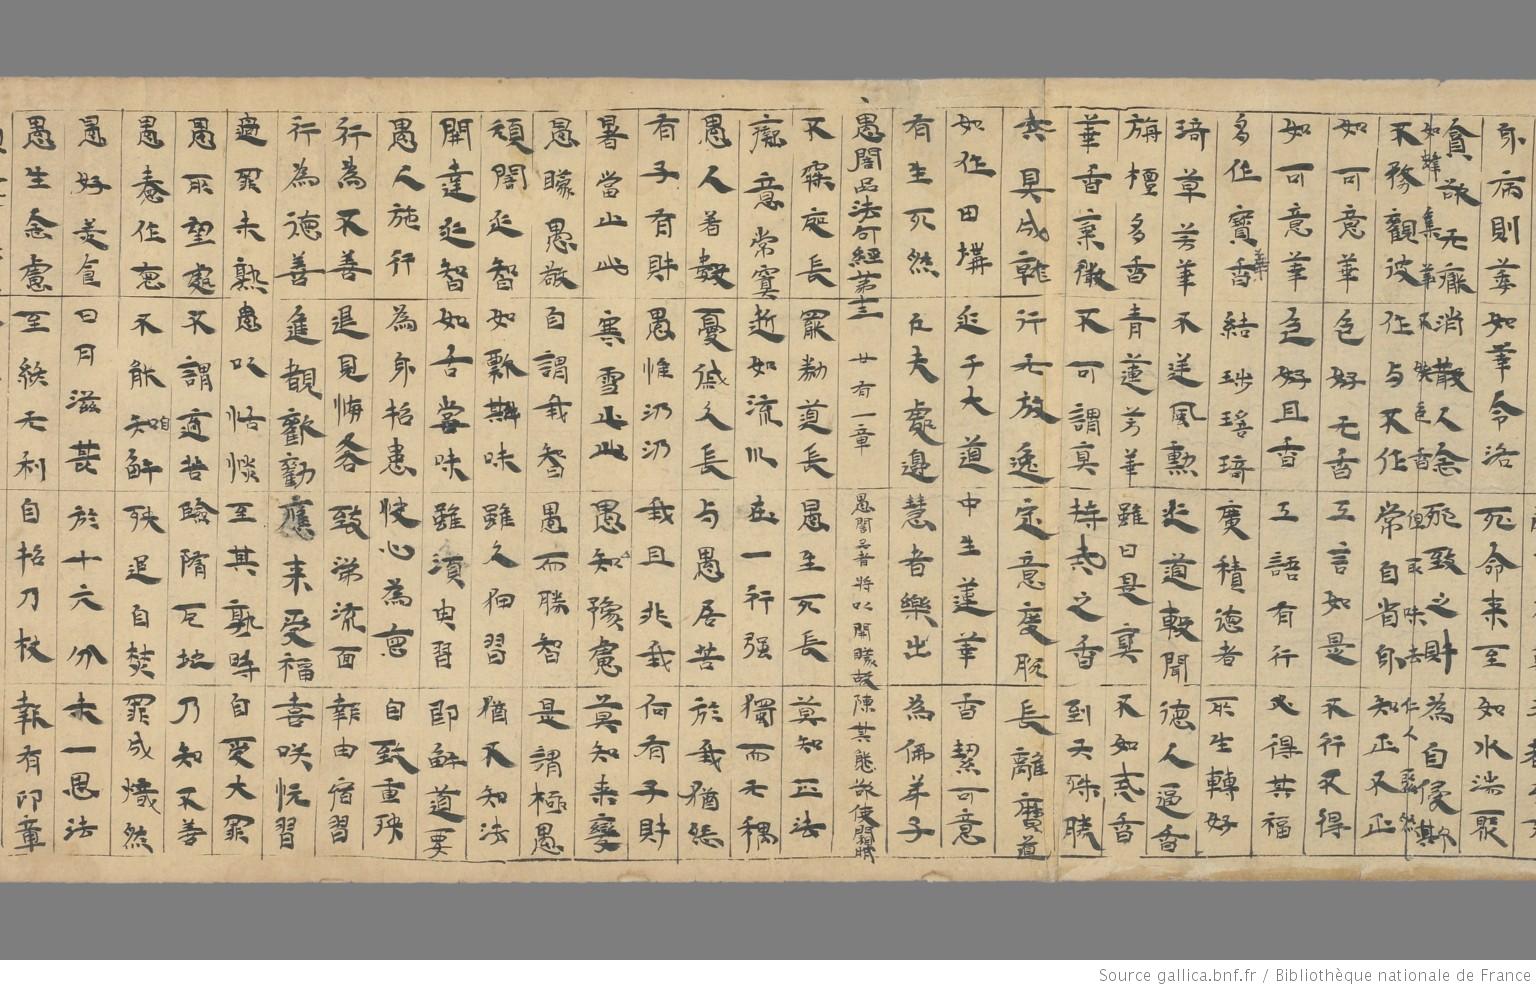 身病則萎 如華零落 死命来至 如水湍聚
貪欲无厭 消散人念 死致之財 為自侵欺
如蜂集華 不嬈色香 但取味去 仁人聚然
不務觀彼 作与不作 常自省身 知正不正
如可意華 色好无香 工言如是 不行不得
如可意華 色好且香 工語有行 必得其福
多作寶華 結步瑶琦 廣積德者 所生轉好
琦草芳華 不逆風熏 近道敷聞 德人逼香
旃檀多香 青蓮芳華 雖曰是真 不如戒香
華香氣微 不可謂真 持戒之香 到天殊勝
戒具成就 行无放逸 定意度脱 長離魔道
如作田溝 近于大道 中生蓮華 香潔可意
有生死然 凡夫處邊 慧者樂出 為佛弟子
愚闇品法句經第十三 廿有一章 愚闇品者將以開矇故陳其態欲使闚眀
不寐夜長 罷惓道長 愚生死長 莫知正法
癡意常冥 逝如流川 在一行强 獨而无偶
愚人著數 憂慼久長 与愚居苦 於我猶怨
有子有財 愚惟汲汲 我且非我 何有子財
暑當止此 寒雪止此 愚知豫慮 莫知来變
愚矇愚極 自謂我智 愚而勝智 是謂極愚
頑闇近智 如瓢斟味 雖久狎習 猶不知法
開達近智 如舌嘗味 雖須臾習 即解道要
愚人施行 為身招患 快心為惡 自致重殃
行為不善 退見悔吝 致涕流面 報由宿習
行為德善 進覩歡勸 應来受福 喜咲悦習
過罪未熟 愚以恬惔 至其熟時 自受大罪
愚所望處 不謂適苦 臨墮厄地 乃知不善
愚惷作惡 不能自解 殃追自焚 罪成熾然
愚好美食 日月滋甚 於十六分 未一思法
愚生念慮 至終无利 自招刀杖 報有印章